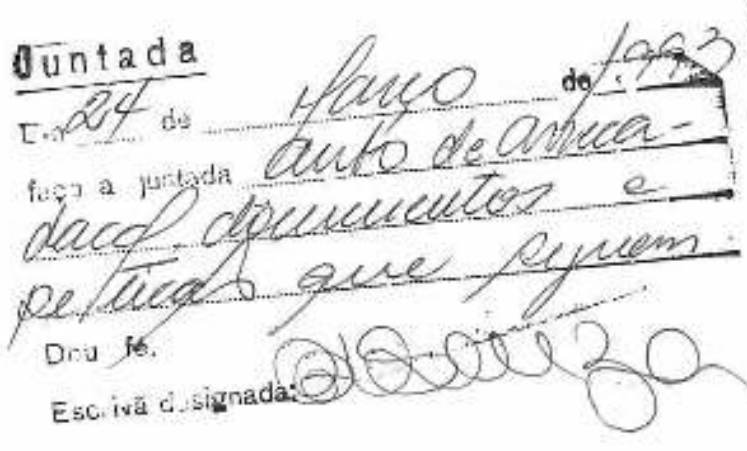 Juntada
Em 24 de Março de 1993
faço a juntada auto de arreca-
dação, documentos e
petição que seguem.
Dou fé.
Escrivã designada: